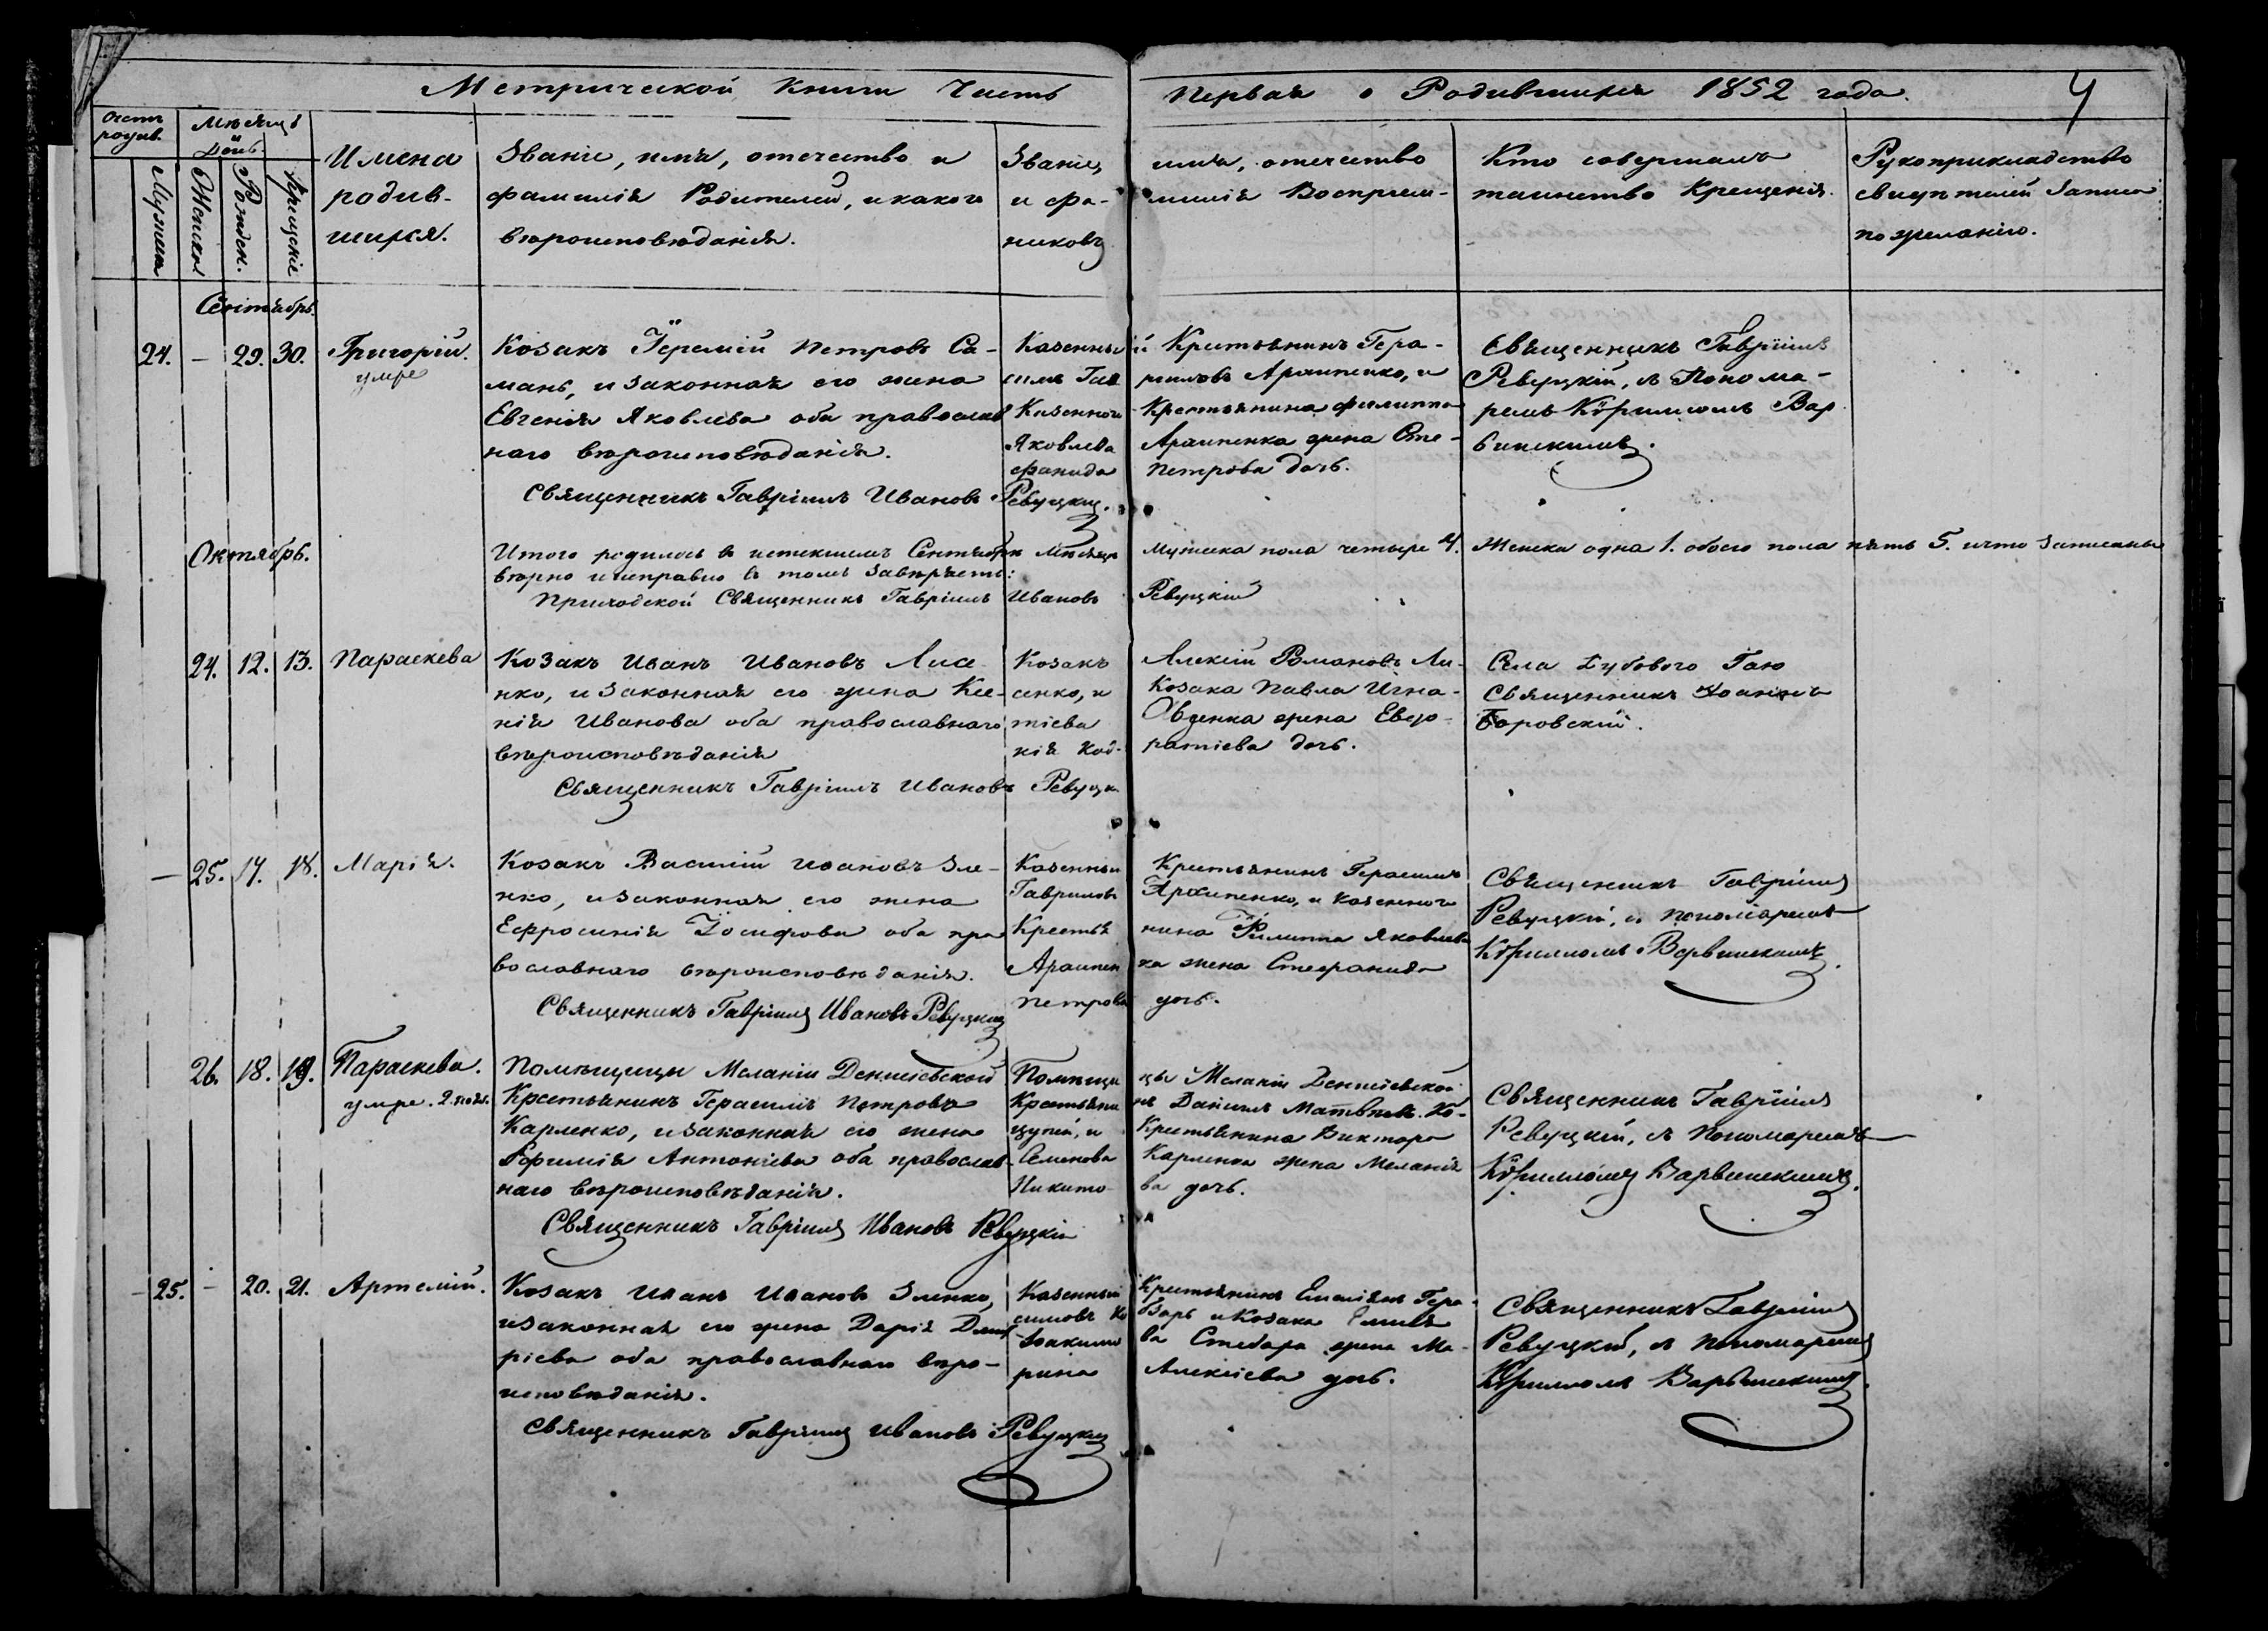 Метрической Книги Часть Первая о Родившихся 1852 года. 4
Счетъ родив.
Мужеска
Женска
Мѣсяцъ День
Рожден.
Крещеніе
Имена
родив-
шихся.
Званіе, имя, отечество и
фамилія Родителей, и какого
вѣроисповѣданія.
Званіе, имя, отечество
и фа- милія Воспріем-
никовъ
Кто совершалъ
таинство Крещенія.
Рукоприкладство
свидѣтелей записи
по желанію.
Сентябрь.
24. — 29. 30. Григорій.
умре
Козакъ Іеремій Петровъ Са-
мань, и законная его жена
Евгенія Яковлева оба православ
наго вѣроисповѣданія.
Священникъ Гавріилъ Ивановъ Ревуцкий.
Казенный Крестьянинъ Гера-
симъ Гав риловъ Архипенко, и
Казенного Крестьянина Филиппа
Яковлева Архипенка жена Сте-
фанида Петрова дочь.
Священникъ Гавріилъ
Ревуцкій, съ Понома-
ремъ Кѵрилломъ Вар
винскимъ.
Октябрь.
Итого родилось в истекшемъ Сентябрѣ мѣсяце Мужеска пола четыре 4. Женска одна 1. обоего пола пять 5. и что записаны
вѣрно и исправно въ томъ завѣряетъ:
Приходской Священникъ Гавріилъ Ивановъ Ревуцкій
24. 12. 13. Параскева
Козакъ Иванъ Ивановъ Лисе
нко, и законная его жена Ксе-
нія Иванова оба православнаго
вѣроисповѣданія
Священникъ Гавріилъ Ивановъ Ревуцки
Козакъ Алексій Романовъ Ли-
сенко, и Козака Павла Игна-
тіева Овденка жена Евдо-
кія Код- ратіева дочь.
Села Дубового Гаю
Священникъ Іоаннъ
Боровскій.
— 25. 17. 18. Марія.
Козакъ Василій Ивановъ Зле-
нко, и законная его жена
Ефросинія Іосифова оба пра
вославнаго вѣроисповѣданія.
Священникъ Гавріилъ Ивановъ Ревуцкий
Казенный Крестьянинъ Герасимъ
Гавриловъ Архипенко, и казенного
Крестья нина Филиппа Яковлева
Архипен ка жена Стефанида
Петрова дочь.
Священникъ Гавріилъ
Ревуцкій, съ пономаремъ
Кѵрилломъ Варвинскимъ.
26. 18. 19. Параскева.
умре.
Помѣщицы Меланіи Денисіевской
Крестьянинъ Герасимъ Петровъ
Карленко, и законная его жена
Ефимія Антоніева оба православ-
наго вѣроисповѣданія.
Священникъ Гавріилъ Ивановъ Ревуцкій
Помѣщи цы Меланіи Денисіевской
Крестьяни нъ Даніилъ Матвѣев. Ко-
цупей, и Крестьянина Виктора
Семенова Карленка жена Меланія
Никито- ва дочь.
Священникъ Гавріилъ
Ревуцкій, съ Пономаремъ
Кѵрилломъ Варвинскимъ.
— 25. — 20. 21. Артемій.
Козакъ Иванъ Ивановъ Зленко,
и законная его жена Дарія Дмит
ріева оба православнаго вѣро-
исповѣданія.
Священникъ Гавріилъ Ивановъ Ревуцкий
Казенный Крестьянинъ Емиліанъ Гера-
симовъ Ко бзарь и Козака
Іоакимо ва Стебара жена Ма-
рина Алексіева дочь.
Священникъ Гавріилъ
Ревуцкій, съ Пономаремъ
Кѵрилломъ Варвинскимъ.